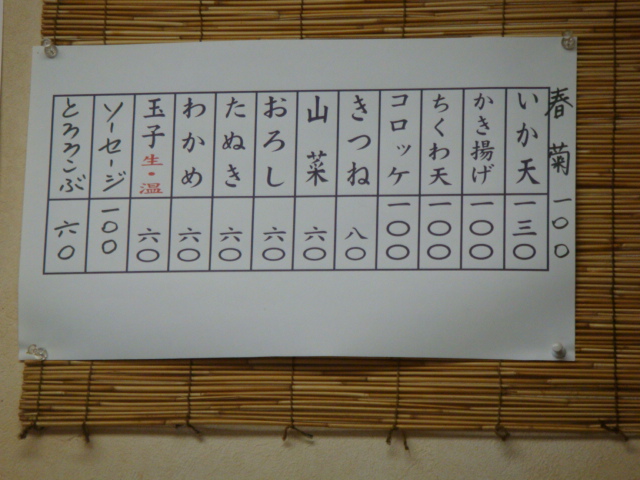 春菊 一〇〇
いか天 一三〇
かき揚げ 一〇〇
ちくわ天 一〇〇
コロッケ 一〇〇
きつね 八〇
山菜 六〇
おろし 六〇
たぬき 六〇
わかめ 六〇
玉子 生・温 六〇
ソーセージ 一〇〇
とろろこぶ 六〇